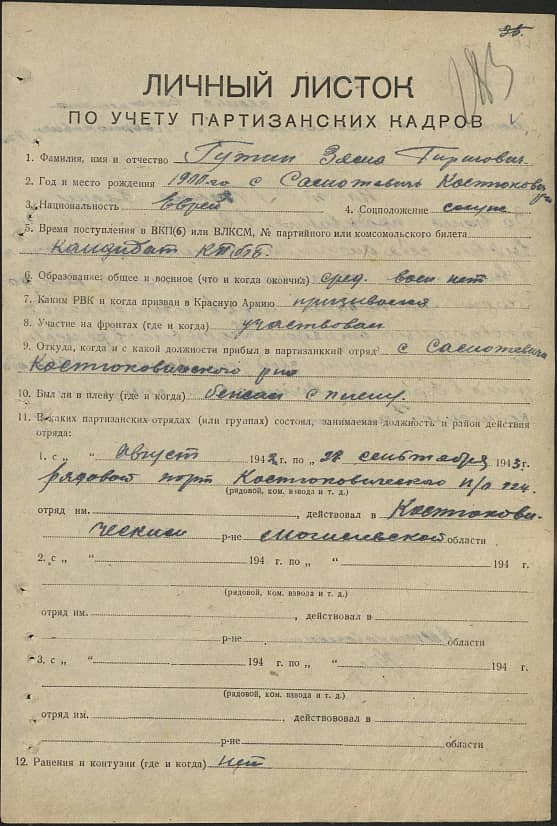 ЛИЧНЫЙ ЛИСТОК
ПО УЧЕТУ ПАРТИЗАНСКИХ КАДРОВ
1. Фамилия, имя и отчество Гиршович
2. Год и место рождения с Самотевичь Костюкович
3. Национальность Еврей 4. Соцположение служ
5. Время поступления в ВКП(б) или ВЛКСМ, № партийного или комсомольского билета
Кандидат КП(б)Б
6. Образование: общее и военное (что и когда окончил) сред. воен нет
7. Каким РВК и когда призван в Красную Армию призывался
8. Участие на фронтах (где и когда) участвовал
9. Откуда, когда и с какой должности прибыл в партизанккий отряд с Самотевичи
Костюковического р-на
10. Был ли в плену (где и когда)
11. В каких партизанских отрядах (или группах) состоял, занимаемая должность и район действия
отряда:
1. с „ “ август 1942 г. по „ 28 сентября 1943 г.
рядовой парт Костюковического п/о
(рядовой, ком. взвода и т. д.)
отряд им. , действовал в Костюкови-
ческом р-не Могилевской области
2. с „ “ 194 г. по „ “ 194 г.
(рядовой, ком. взвода и т. д.)
отряд им. , действовал в
р-не области
3. с „ “ 194 г. по „ “ 194 г.
(рядовой, ком. взвода и т. д.)
отряд им. , действововал в
р-не области
12. Ранения и контузии (где и когда) нет